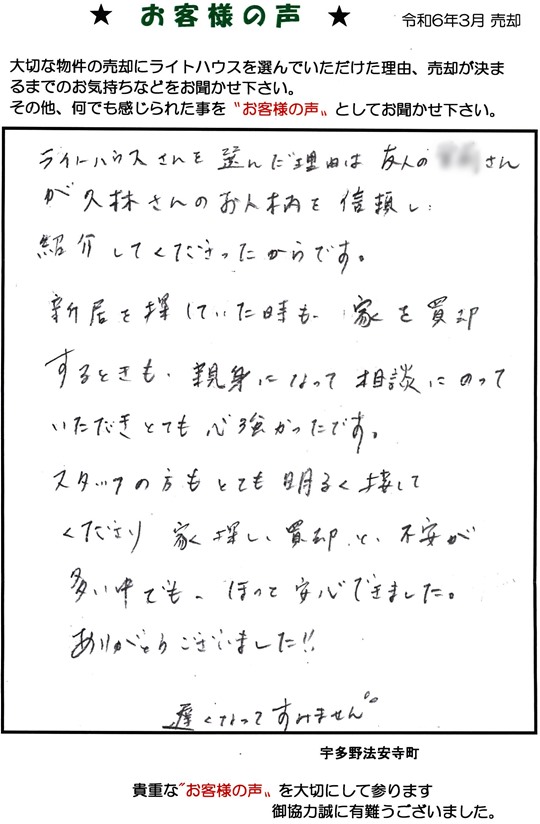 ★ お客様の声 ★
令和6年3月 売却
大切な物件の売却にライトハウスを選んでいただけた理由、売却が決ま
るまでのお気持ちなどをお聞かせ下さい。
その他、何でも感じられた事を〝お客様の声〟としてお聞かせ下さい。
ライトハウスさんを選んだ理由は 友人の さん
が久林さんのお人柄を信頼し
紹介してくださったからです。
新居を探していた時も、家を買却
するときも、親身になって相談にのって
いただきとても心強かったです。
スタッフの方もとても明るく接して
くださり 家探し、買却と、不安が
多い中でも、ほっと安心できました。
ありがとうございました!!
遅くなってすみません
宇多野法安寺町
貴重な〝お客様の声〟を大切にして参ります
御協力誠に有難うございました。